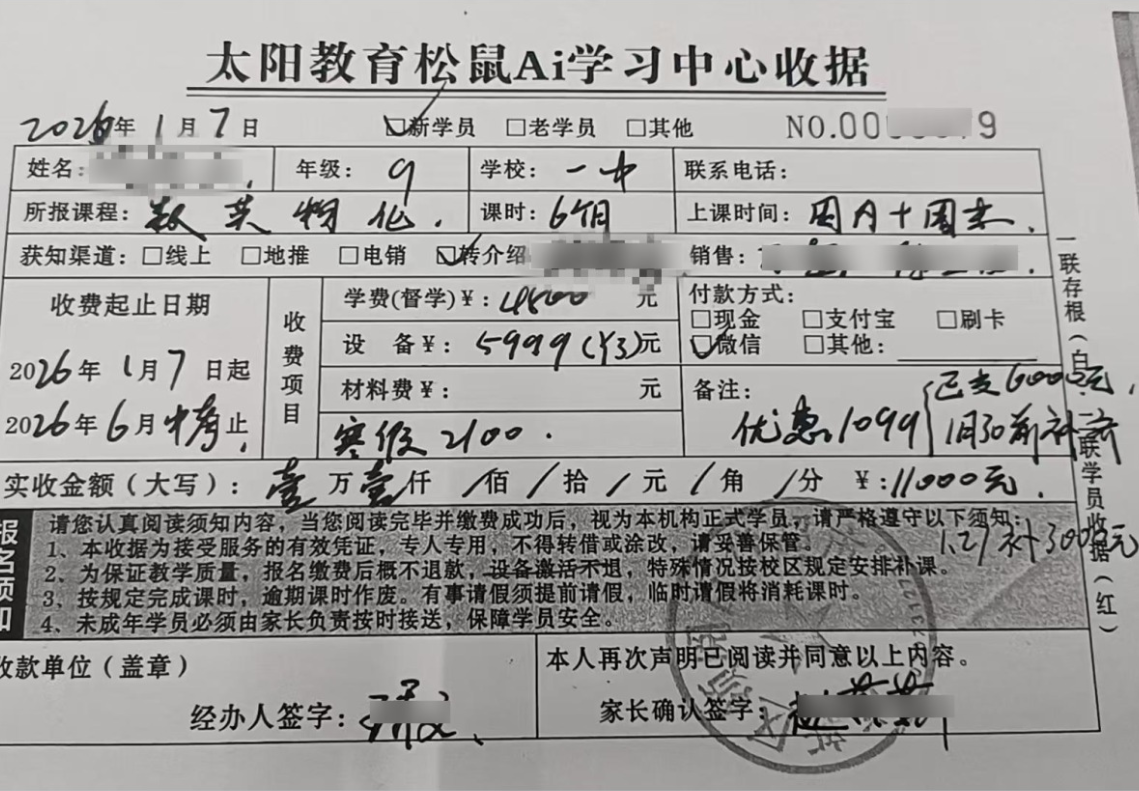 太阳教育松鼠Ai学习中心收据
2026年1月7日 新学员 老学员 其他 NO.00 79
姓名: 年级: 9 学校: 一中 联系电话:
所报课程: 数 英 物 化. 课时: 6个月 上课时间: 周内十周末.
获知渠道: 线上 地推 电销 转介绍 销售:
收费起止日期
2026年1月7日起
2026年6月中考止
收费项目
学费(督学)¥: 4800元
设 备¥: 5999(Y3)元
材料费¥: 元
寒假2100.
付款方式:
现金 支付宝 刷卡
微信 其他:
备注:
优惠1099
已支6000元,
1月30前补齐
实收金额(大写): 壹万壹仟/佰/拾/元/角/分 ¥:11000元.
1.27补3000元
报名须知
请您认真阅读须知内容,当您阅读完毕并缴费成功后,视为本机构正式学员,请严格遵守以下须知:
1、本收据为接受服务的有效凭证,专人专用,不得转借或涂改,请妥善保管。
2、为保证教学质量,报名缴费后概不退款,设备激活不退,特殊情况按校区规定安排补课。
3、按规定完成课时,逾期课时作废。有事请假须提前请假,临时请假将消耗课时。
4、未成年学员必须由家长负责按时接送,保障学员安全。
收款单位(盖章)
经办人签字:
本人再次声明已阅读并同意以上内容。
家长确认签字:
一联存根(白)二联学员收据(红)